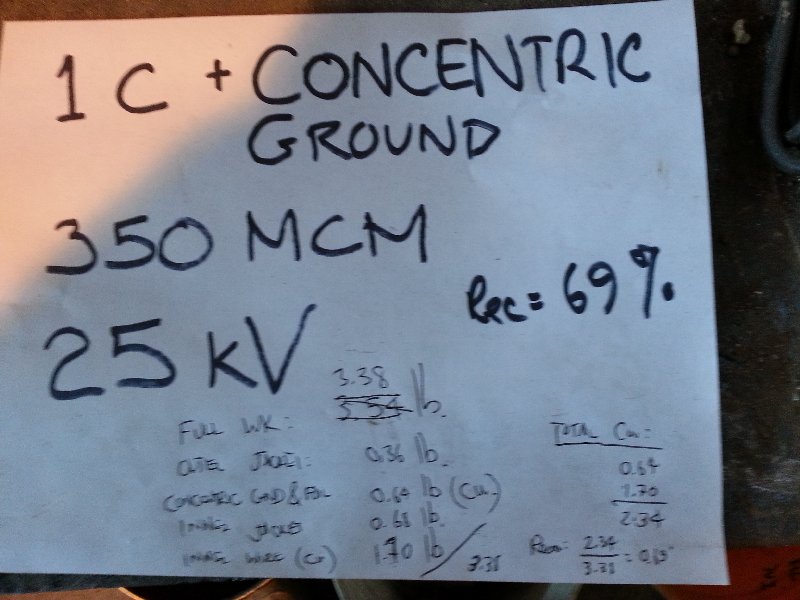 1 C + CONCENTRIC
GROUND
350 MCM
25 kV
Rec = 69%
3.38
lb.
FULL WK:
OUTER JACKET: 0.36 lb.
CONCENTRIC GND & FOIL 0.64 lb (Cu)
INNER JACKET 0.68 lb.
INNER WIRE (Cu) 1.70 lb / 3.38
TOTAL Cu:
0.64
1.70
2.34
2.34
3.38